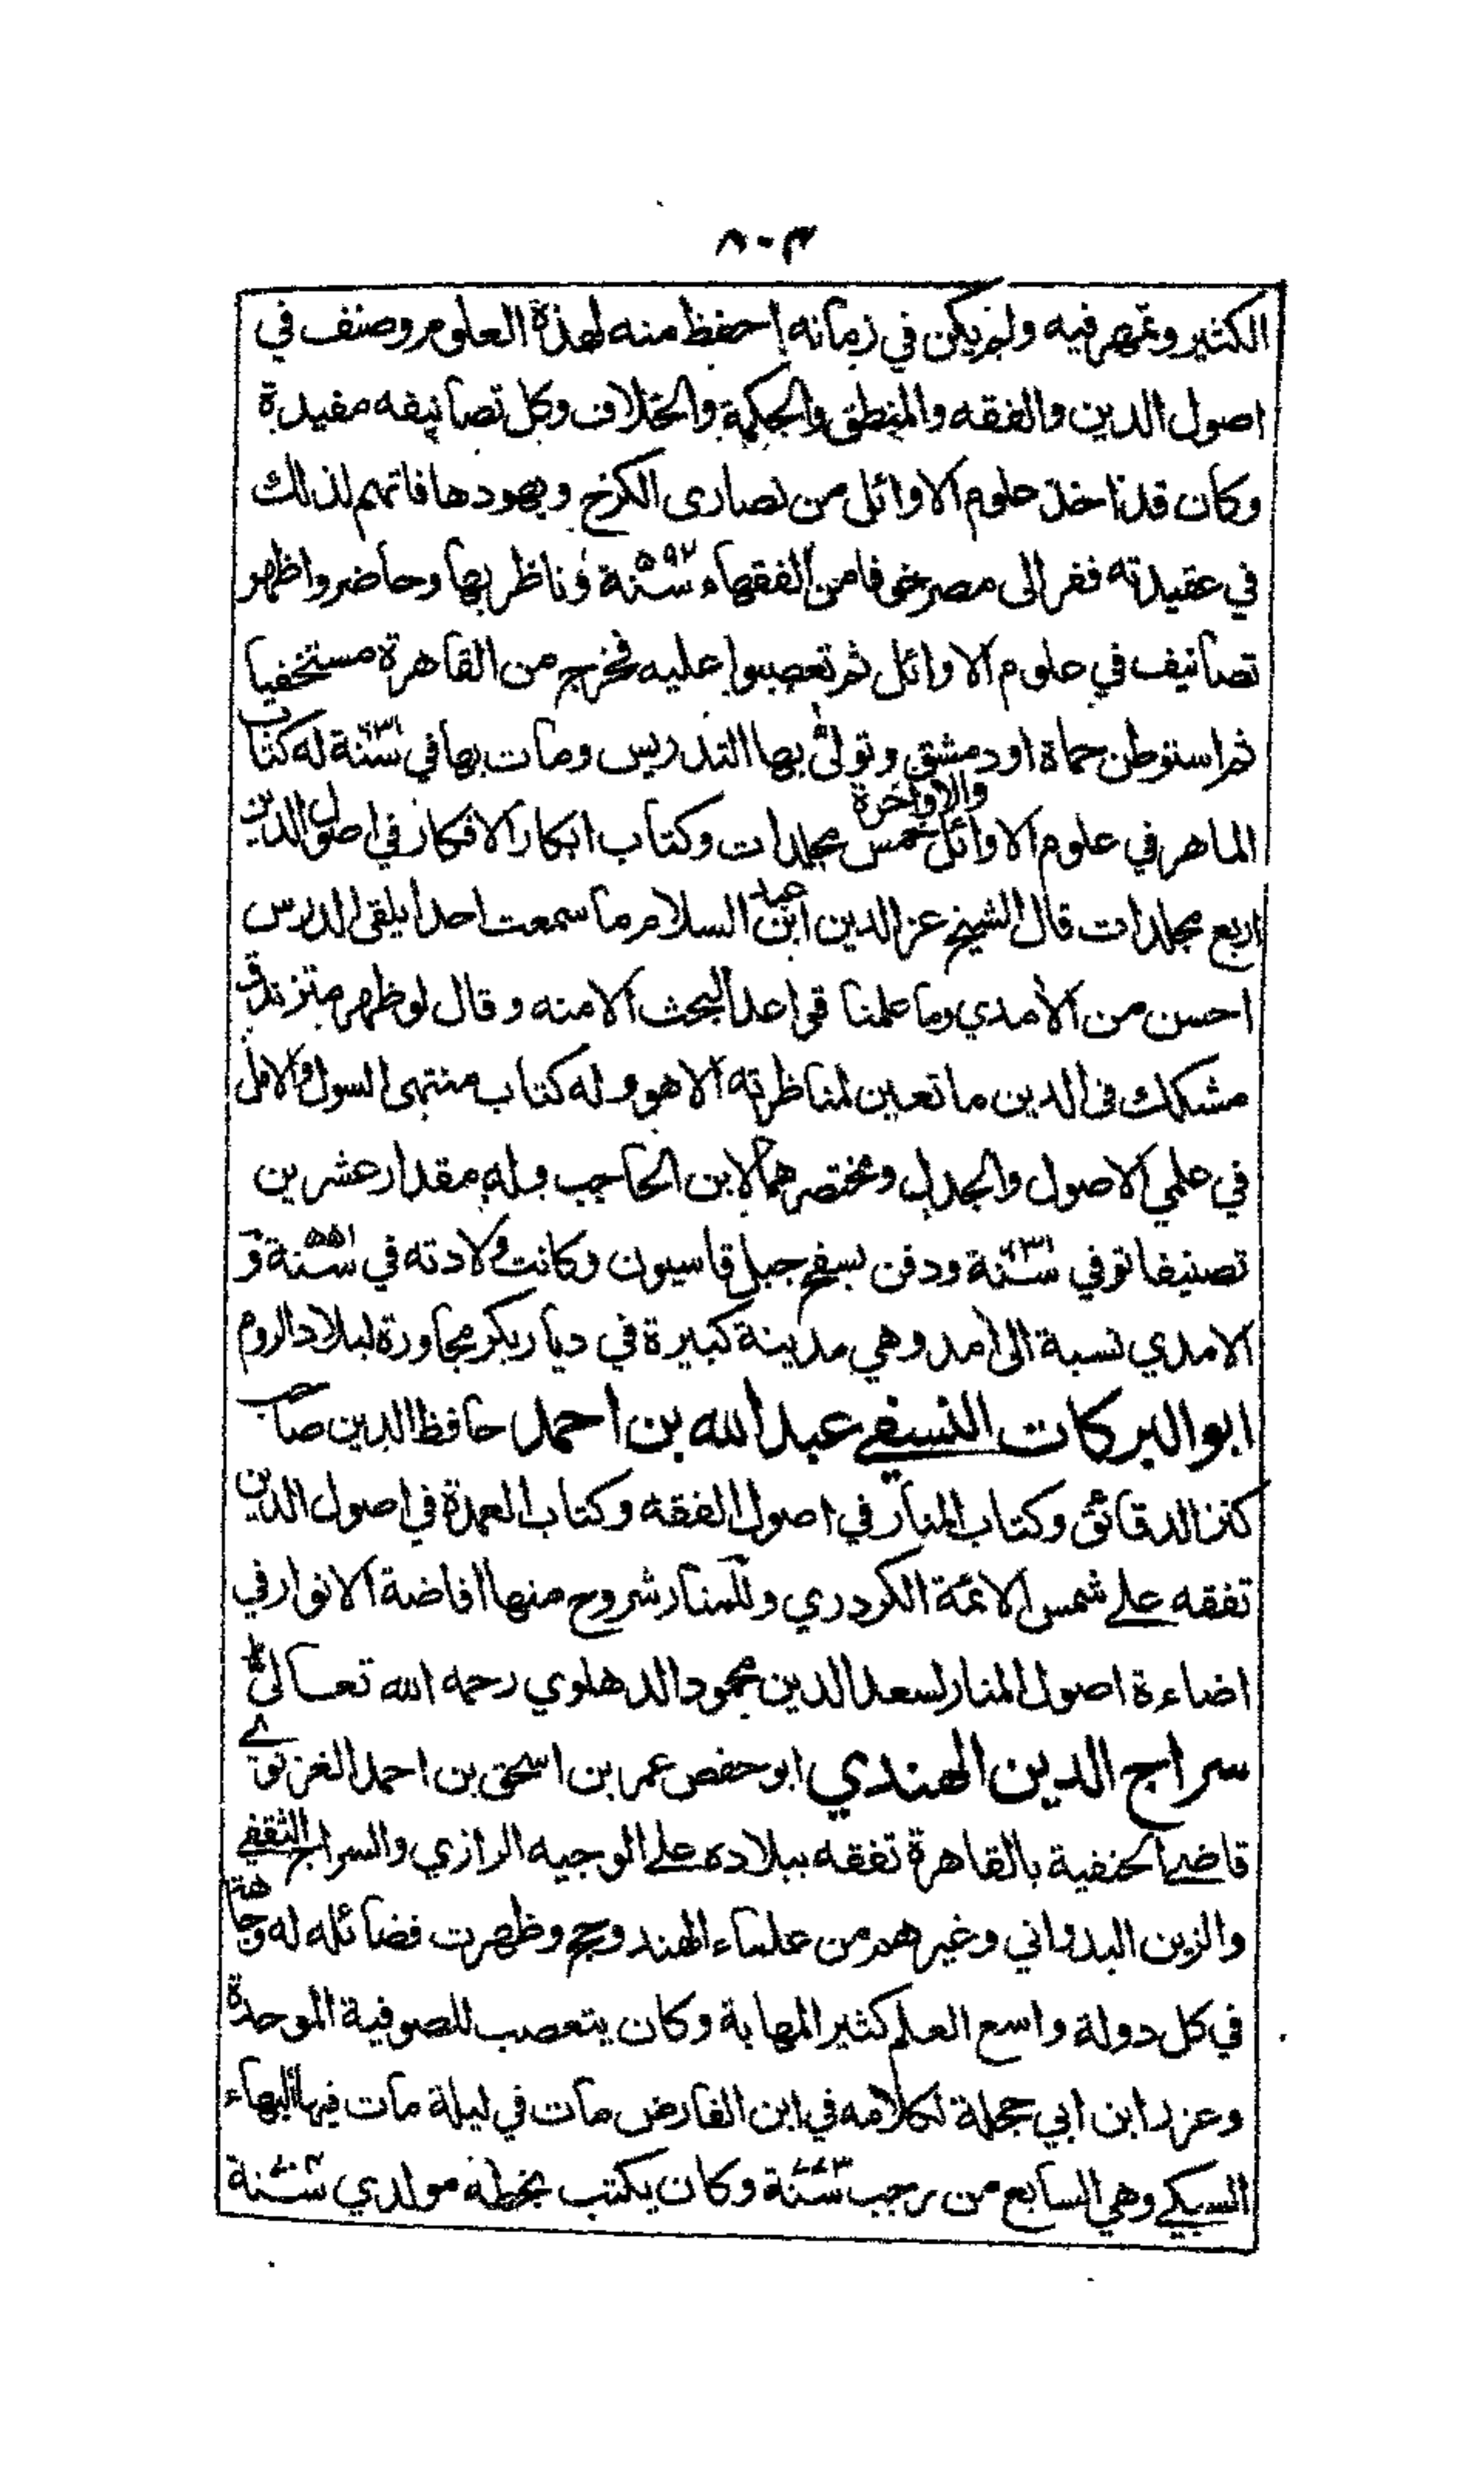 ٨٠٣
الكثير وتمهر فيه ولم يكن في زمانه احفظ منه لهذة العلوم وصنف في
اصول الدين والفقه والمنطق والحكمة والخلاف وكل تصانيفه مفيدة
وكان قد اخذ علوم الاوائل من نصارى الكرخ ويهودها فاتهم لذلك
في عقيدته ففر الى مصر خوفا من الفقهاء سنة ٥٩٢ و ناظر بها وحاضر واظهر
تصانيف في علوم الاوائل ثم تعصبوا عليه فخرج من القاهرة مستخفيا
ثم استوطن حماة او دمشق وتولى بها التدريس ومات بها في سنة ٦٣١ له كتاب
الماهر في علوم الاوائل والاواخرة خمس مجلدات وكتاب ابكار الافكار في اصول الدين
اربع مجلدات قال الشيخ عز الدين ابن عبد السلام ما سمعت احدا يلقى الدرس
احسن من الآمدي وما علمنا قواعد البحث الا منه وقال لو ظهر متزندق
مشكك في الدين ما تعين لمناظرته الا هو وله كتاب منتهى السول والامل
في علمي الاصول والجدل ومختصرهما لابن الحاجب وله مقدار عشرين
تصنيفا توفي سنة ٦٣١ ودفن بسفح جبل قاسيون وكانت ولادته في سنة ٥٥١ و
الامدي نسبة الى آمد وهي مدينة كبيرة في ديار بكر مجاورة لبلاد الروم
ابو البركات النسفي عبد الله بن احمد حافظ الدين صاحب
كنز الدقائق وكتاب المنار في اصول الفقه وكتاب العمدة في اصول الدين
تفقه على شمس الائمة الكردري وللمنار شروح منها افاضة الانوار في
اضاءة اصول المنار لسعد الدين محمود الدهلوي رحمه الله تعالى
سراج الدين الهندي ابو حفص عمر بن اسحق بن احمد الغزنوي
قاضي الحنفية بالقاهرة تفقه ببلاده على الوجيه الرازي والسراج الثقفي
والزين البدواني وغيرهم من علماء الهند وحج وظهرت فضائله له وجاهة
في كل دولة واسع العلم كثير المهابة وكان يتعصب للصوفية الموحدة
وعزر ابن ابي حجلة لكلامه في ابن الفارض مات في ليلة مات فيها البهاء
السبكي وهي السابع من رجب سنة ٧٧٣ وكان يكتب بخطه مولدي سنة ٧٠٤